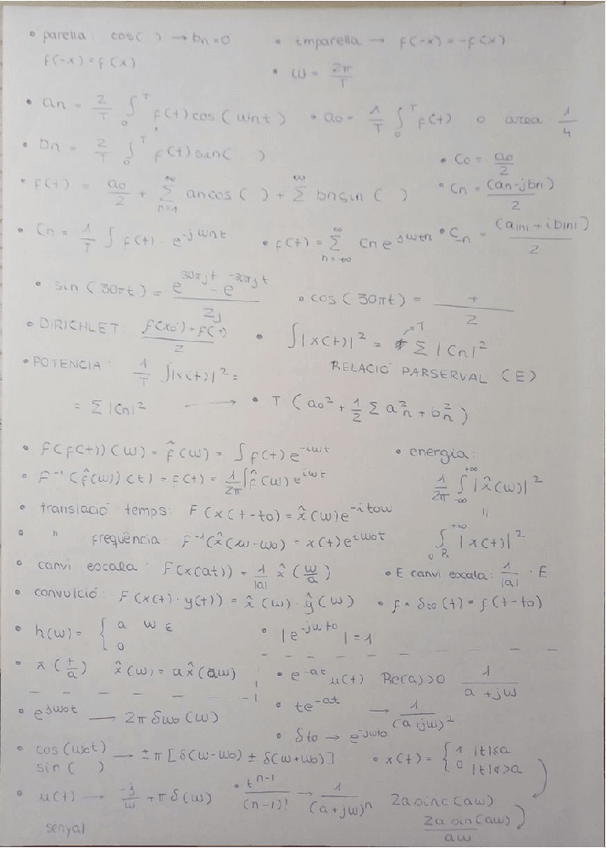 • parella: cos( ) → bn=0 • imparella → f(-x) = -f(x)
f(-x) = f(x) • ω = 2π/T
• an = 2/T ∫₀ᵀ f(t) cos(ωnt) • a₀ = 1/T ∫₀ᵀ f(t) o area 1/4
• bn = 2/T ∫₀ᵀ f(t) sin( ) • C₀ = a₀/2
• f(t) = a₀/2 + Σ_{n=1}^∞ an cos( ) + Σ^∞ bn sin( ) • Cn = (an-jbn)/2
• Cn = 1/T ∫ f(t) · e^{-jωnt} • f(t) = Σ^∞ Cn e^{jωtn} • C₋n = (a|n| + ib|n|)/2
• sin(30πt) = (e^{30πjt} - e^{-30πjt})/2j • cos(30πt) = +/2
• DIRICHLET: (f(x₀⁻) + f( ))/2 • ∫|x(t)|² = T Σ|Cn|²
• POTENCIA: 1/T ∫|x(t)|² = RELACIÓ PARSERVAL (E)
= Σ|Cn|² → • T (a₀² + 1/2 Σ a²n + b²n)
• F(f(t))(ω) = f̂(ω) = ∫ f(t) e^{-iωt} • energia:
• F⁻¹(f̂(ω))(t) = f(t) = 1/2π ∫ f̂(ω) e^{iωt} 1/2π ∫_{-∞}^{+∞} |x̂(ω)|²
• translació temps: F(x(t-t₀)) = x̂(ω) e^{-it₀ω} ıı
• " freqüència: F⁻¹(x̂(ω-ω₀)) = x(t) e^{iω₀t} ∫^{+∞} |x(t)|²
• canvi escala: F(x(at)) = 1/|a| x̂(ω/a) • E canvi escala: 1/|a| · E
• convulció: F(x(t) · y(t)) = x̂(ω) · ŷ(ω) • f * δt₀(t) = f(t-t₀)
• h(ω) = { a ω ε • |e^{-jωt₀}| = 1
0
• x(t/a) x̂(ω) = a x̂(aω) • e^{-at} u(t) Re(a)>0 1/(a+jω)
• e^{jω₀t} — 2πδω₀(ω) • te^{-at} → 1/(a+jω)²
• δt₀ → e^{-jωt₀}
• cos(ω₀t) → ±π[δ(ω-ω₀) ± δ(ω+ω₀)] • x(t) = { 1 |t|≤a
sin( ) 0 |t|>a
• u(t) → -j/ω + πδ(ω) • t^{n-1}/(n-1)! → 1/(a+jω)ⁿ 2a sinc(aω)
senyal 2a sin(aω)/aω